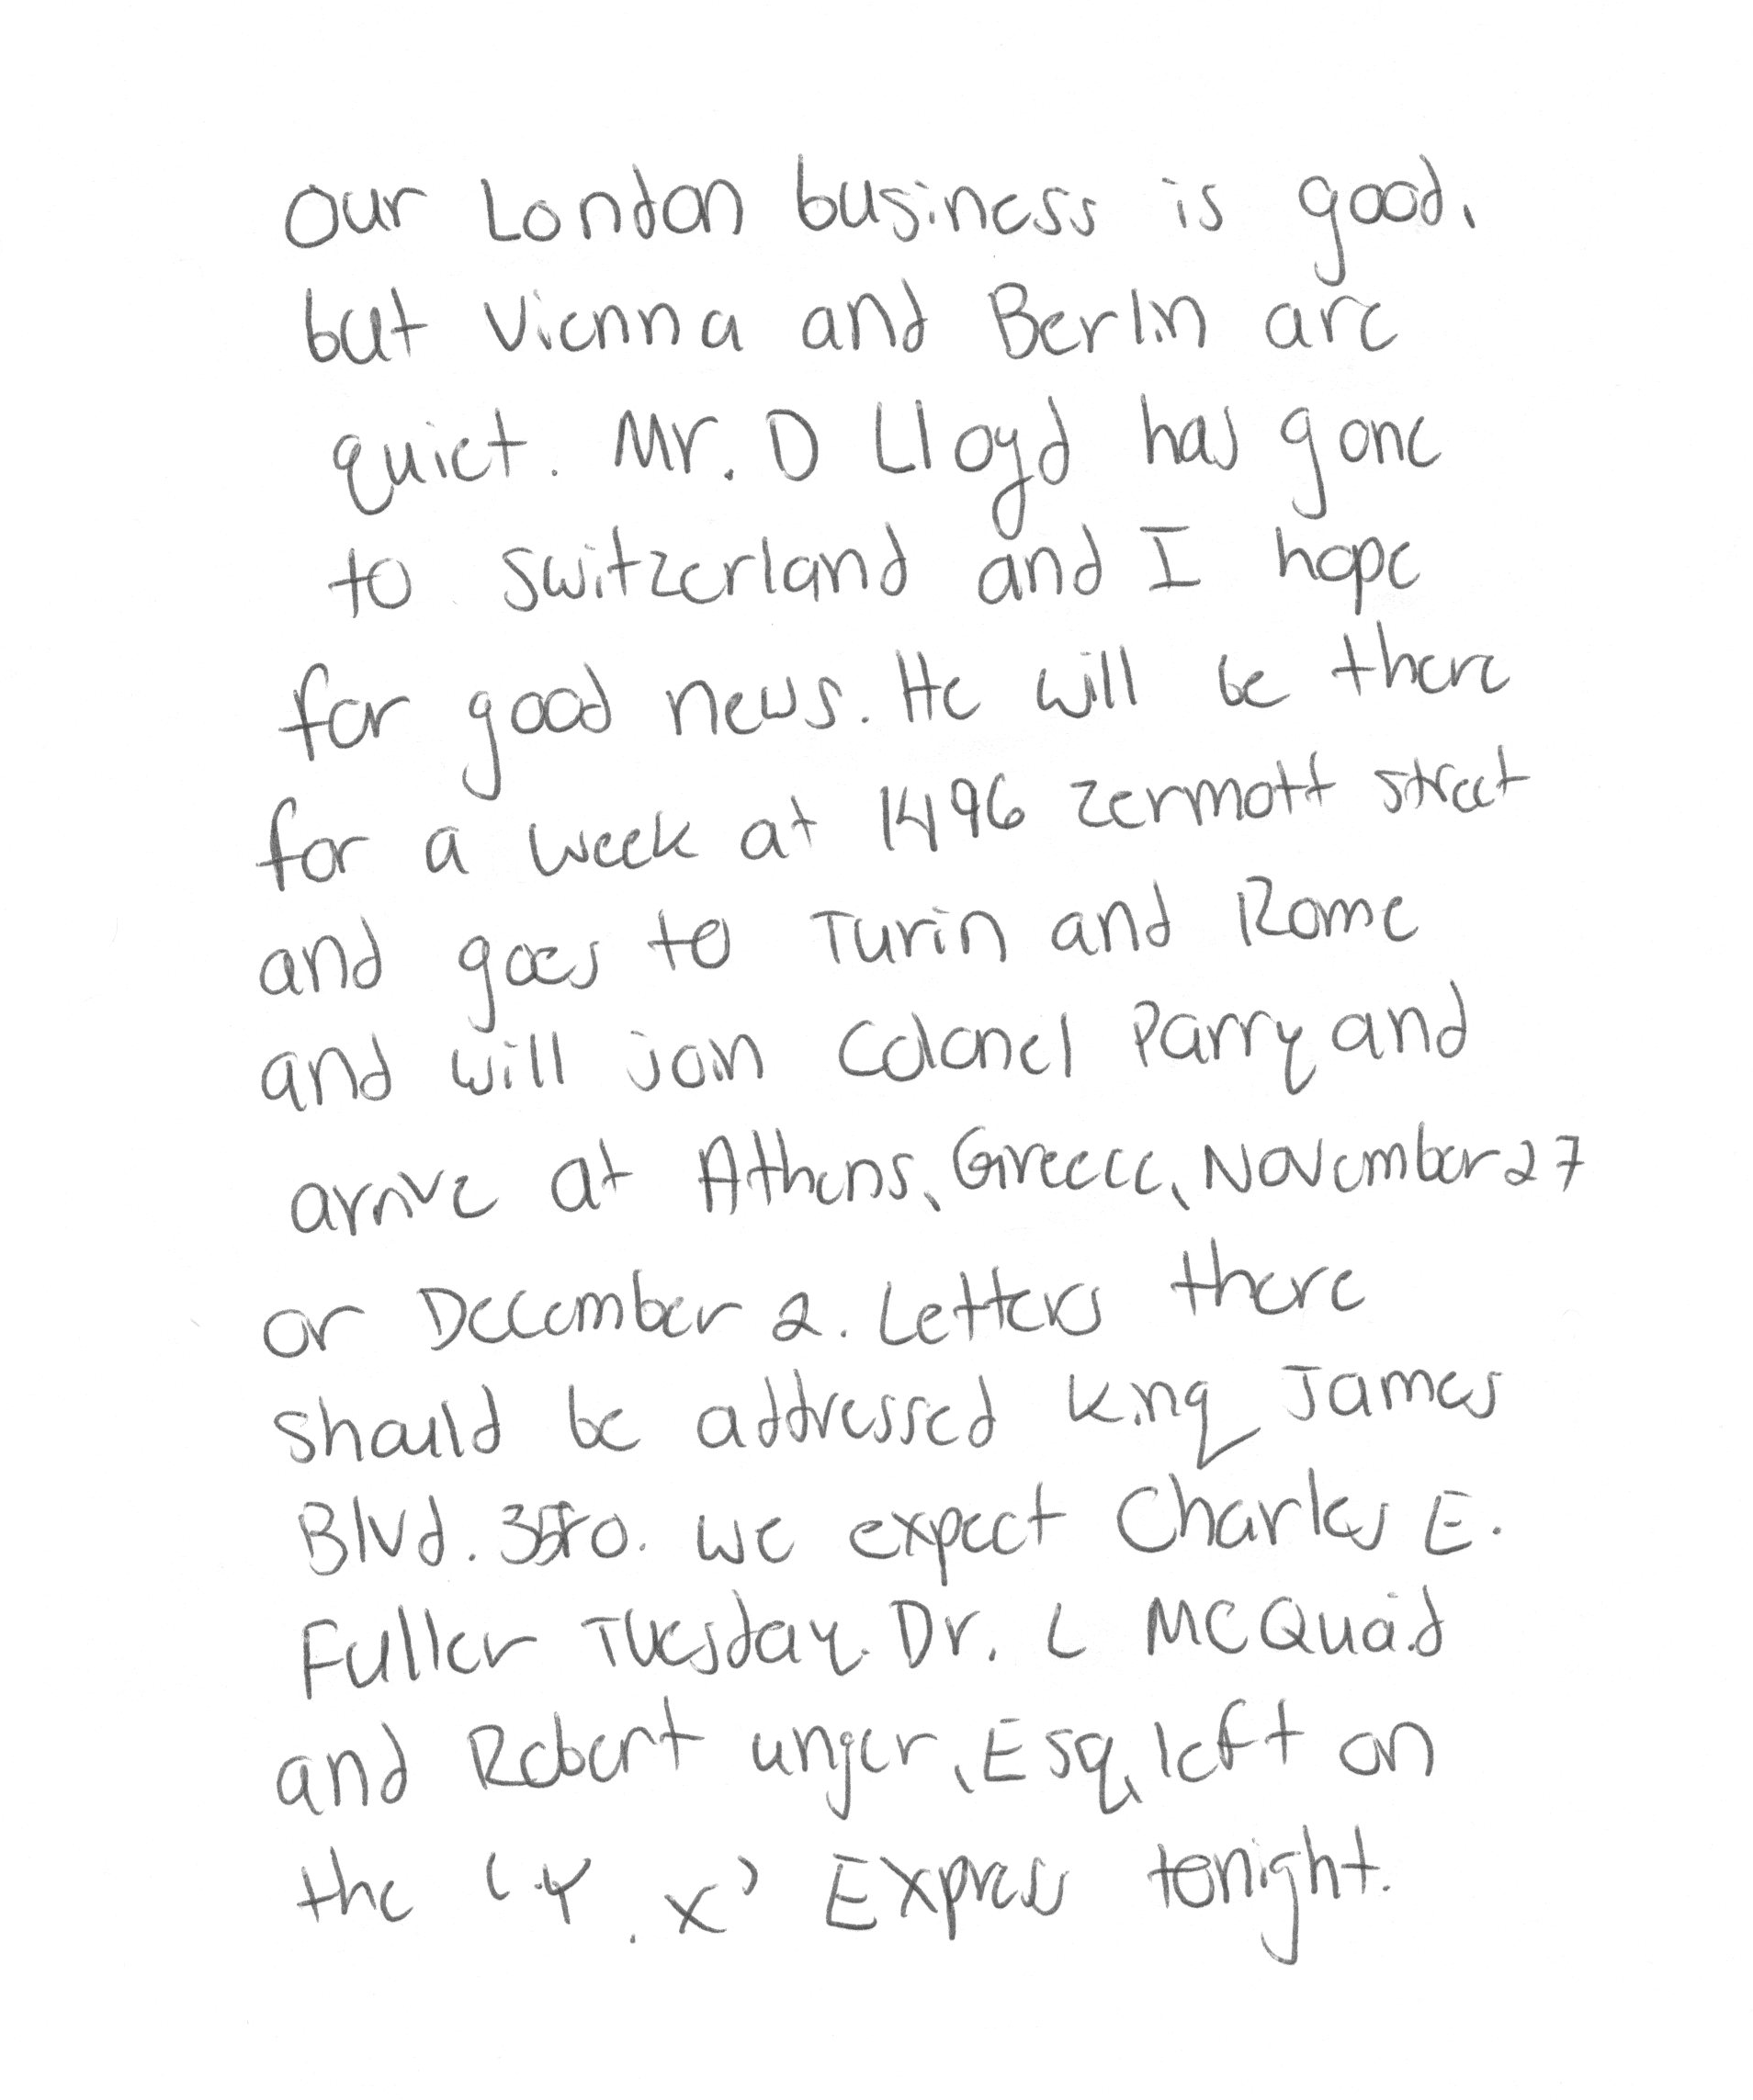 Our London business is good,
but Vienna and Berlin are
quiet. Mr. D Lloyd has gone
to Switzerland and I hope
for good news. He will be there
for a week at 1496 Zermott street
and goes to Turin and Rome
and will join Colonel Parry and
arrive at Athens, Greece, November 27
or December 2. Letters there
should be addressed King James
Blvd. We expect Charles E.
Fuller Tuesday. Dr. L McQuaid
and Robert Unger, Esq, left on
the 'Y. X' Express tonight.